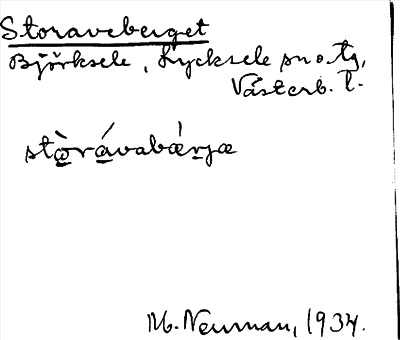 Storaveberget
Björksele, Lycksele sn o. tg,
Västerb. l.
stò̲rá̲vabǽr̲jæ
M. Neuman, 1934.